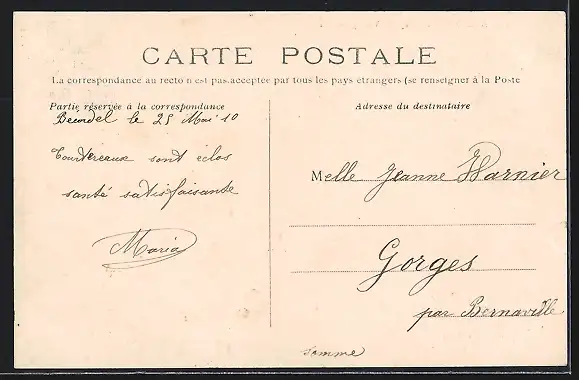 CARTE POSTALE
La correspondance au recto n'est pas acceptée par tous les pays étrangers (se renseigner à la Poste
Partie réservée à la correspondance
Adresse du destinataire
Bécordel le 25 Mai 10
Tourtereaux sont éclos
santé satisfaisante
Maria
Melle Jeanne Warnier
Gorges
par Bernaville
Somme